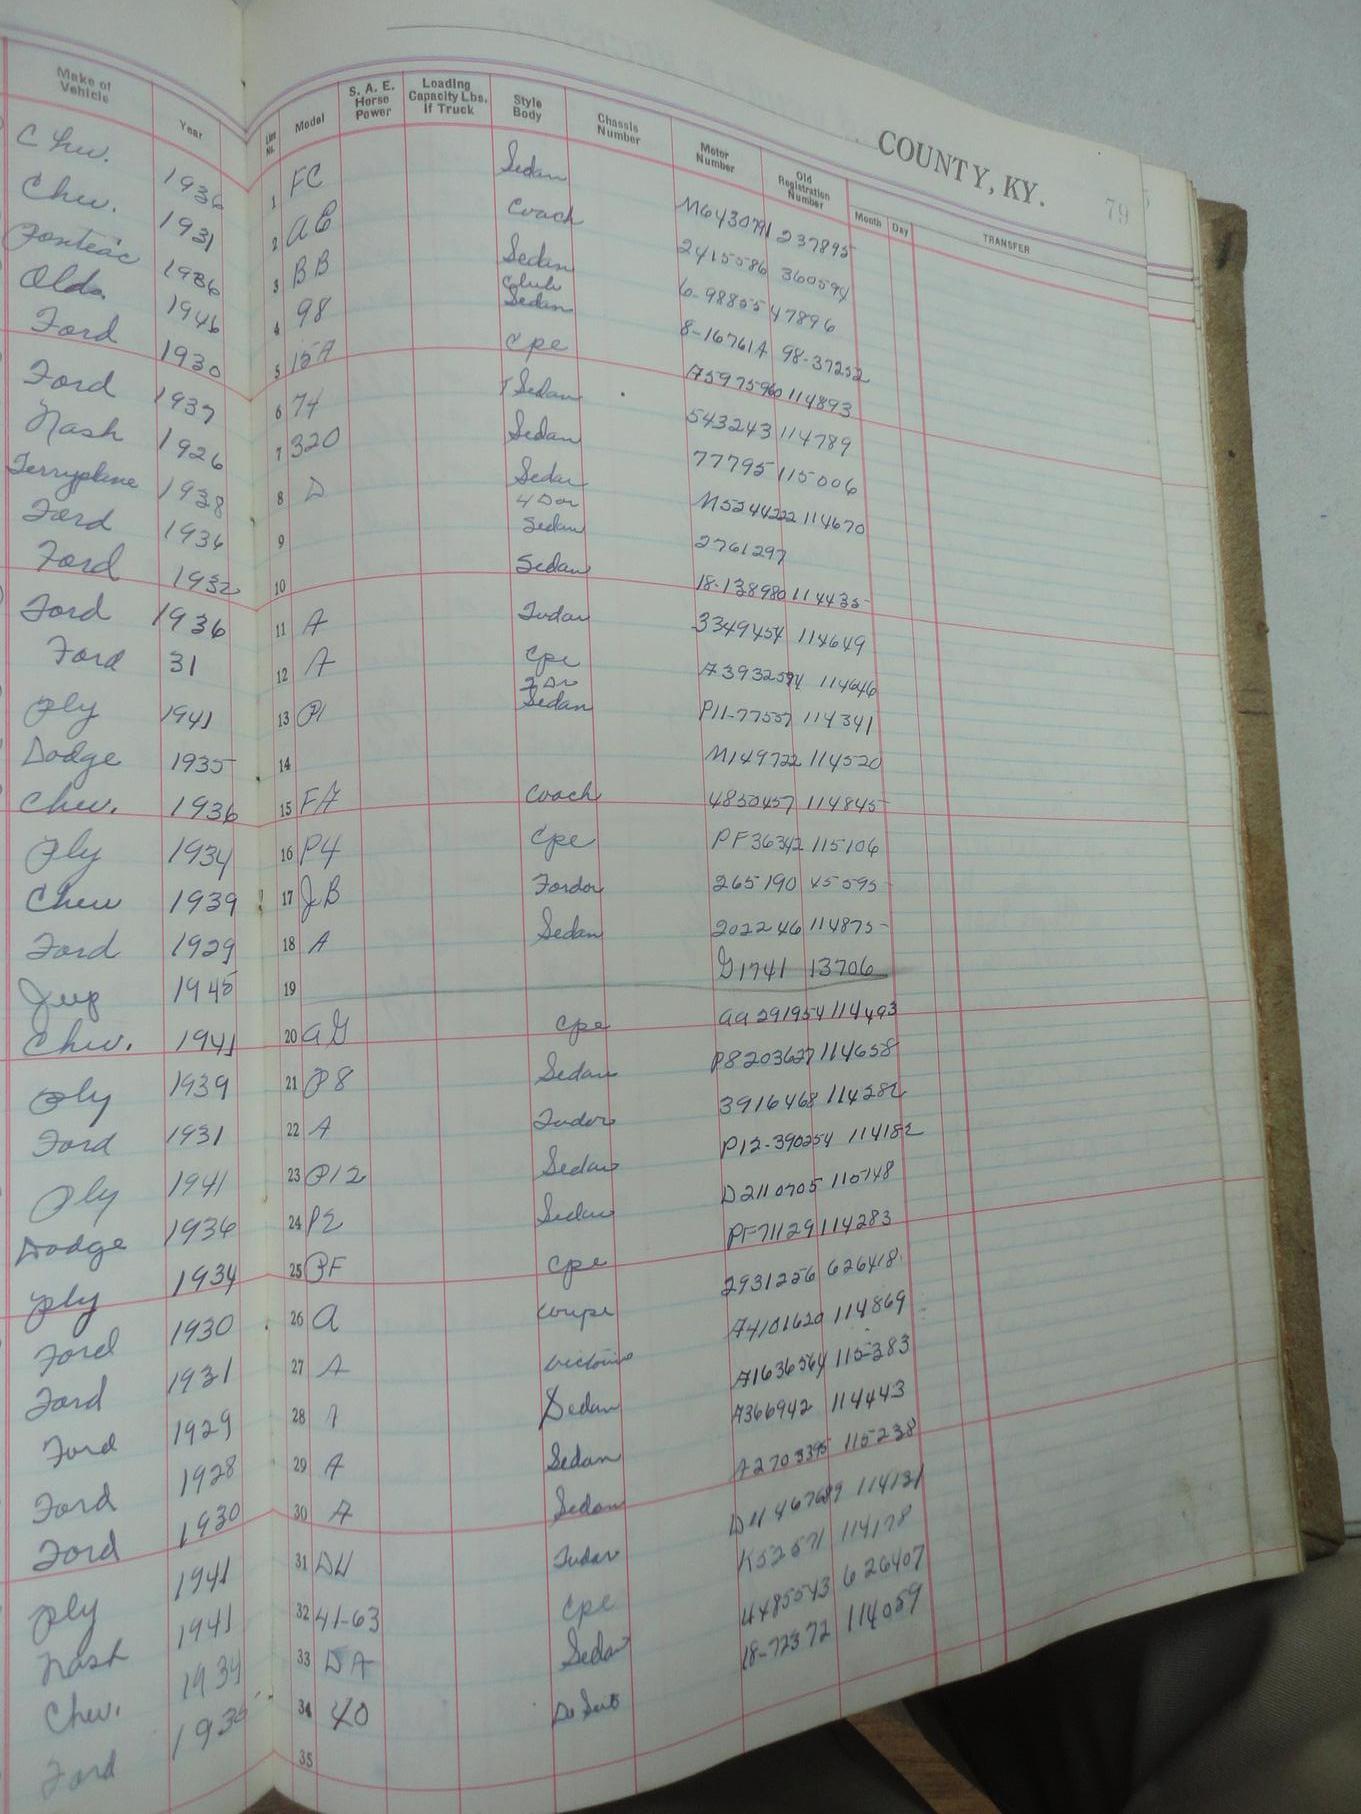 COUNTY, KY. 79
Make of Vehicle Year Line No. Model S. A. E. Horse Power Loading Capacity Lbs. If Truck Style Body Chassis Number Motor Number Old Registration Number Month Day TRANSFER
Chev. 1936 1 FC Sedan M6430791 237895
Chev. 1931 2 AE Coach 2415586 360594
Pontiac 1936 3 BB Sedan 6-98855 47896
Olds. 1946 4 98 Club Sedan 8-16761A 98-37252
Ford 1930 5 15A Cpe A597596 114893
Ford 1937 6 74 T Sedan 543243 114789
Nash 1926 7 320 Sedan 77795 115006
Terryplane 1938 8 D Sedan M5244222 114670
Ford 1936 9 4 Dor Sedan 2761297
Ford 1932 10 Sedan 18-138980 114435
Ford 1936 11 A Tudor 3349454 114649
Ford 31 12 A Cpe A3932594 114646
Ply 1941 13 P11 2 Dr Sedan P11-77557 114341
Dodge 1935 14 M149722 114520
Chev. 1936 15 FA Coach 4850457 114845
Ply 1934 16 P4 Cpe PF36342 115106
Chev 1939 17 JB Fordor 265190 45595
Ford 1929 18 A Sedan 202246 114875
Jeep 1945 19 G1741 13706
Chev. 1941 20 AG Cpe AA291954 114493
Ply 1939 21 P8 Sedan P8203627 114658
Ford 1931 22 A Tudor 3916468 114282
Ply 1941 23 P12 Sedan P12-390254 114182
Dodge 1936 24 P2 Sedan D2110705 115748
Ply 1934 25 PF Cpe PF71129 114283
Ford 1930 26 A Coupe 2931256 626418
Ford 1931 27 A Victoria A4101620 114869
Ford 1929 28 A Sedan A1636564 115283
Ford 1928 29 A Sedan A366942 114443
Ford 1930 30 A Sedan A2703395 115238
Ply 1941 31 D11 Tudor D11467689 114131
Nash 1941 32 41-63 Cpe K52571 114178
Chev. 1934 33 DA Sedan 4485543 626407
Ford 34 40 18-72372 114059
35